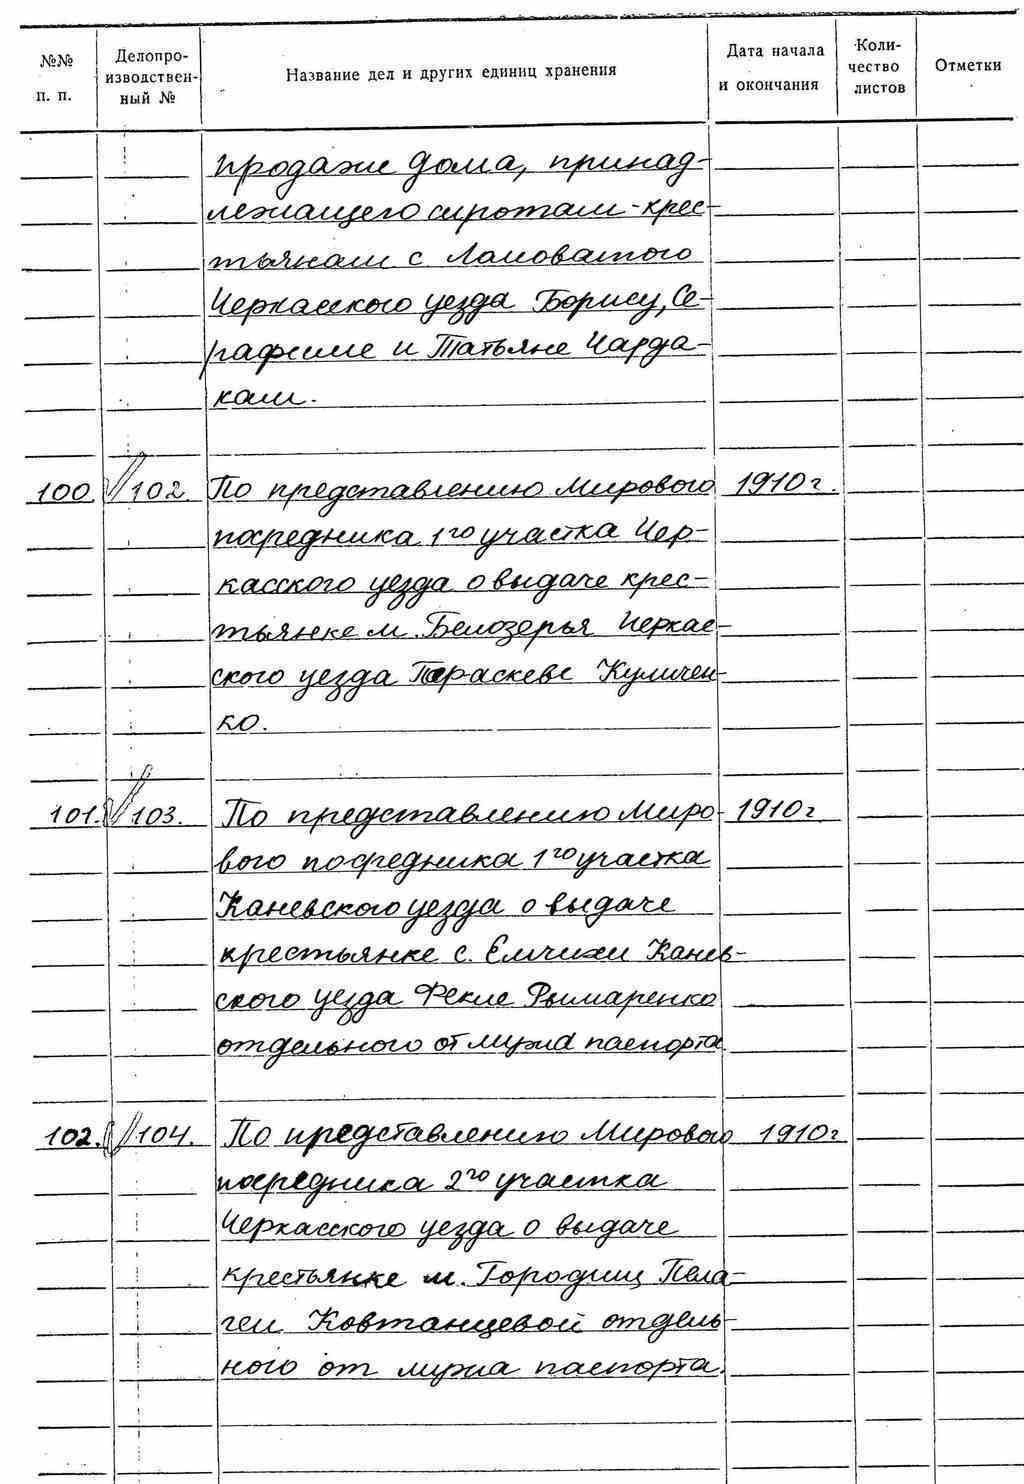 №№ п. п.
Делопро-
изводствен-
ный №
Название дел и других единиц хранения
Дата начала
и окончания
Коли-
чество
листов
Отметки
продажи дома, принад-
лежащего сиротам-крес-
тьянам с Ломоватого
Черкасского уезда Борису, Се-
рафиме и Татьяне Чарда-
кам.
100. 102. По представлению Мирового 1910 г.
посредника 1го участка Чер-
касского уезда о выдаче крес-
тьянке м. Белозерья Черкас-
ского уезда Параскеве Куличен-
ко.
101. 103. По представлению Миро- 1910 г
вого посредника 1го участка
Каневского уезда о выдаче
крестьянке с. Емчихи Канев-
ского уезда Фекле Рымаренко
отдельного от мужа паспорта.
102. 104. По представлению Мирового 1910 г
посредника 2го участка
Черкасского уезда о выдаче
крестьянке м. Городищ Пела-
геи Ковтанцевой отдель-
ного от мужа паспорта.